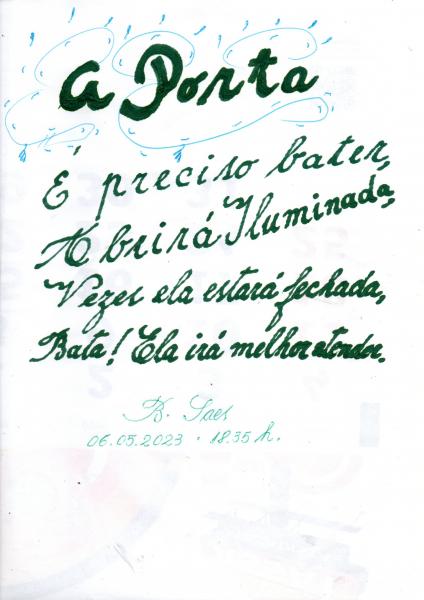 A Porta
É preciso bater,
Abrirá Iluminada,
Vezes ela estará fechada,
Bata! Ela irá melhor atender.
B. Saes
06.05.2023 . 18.35 h.